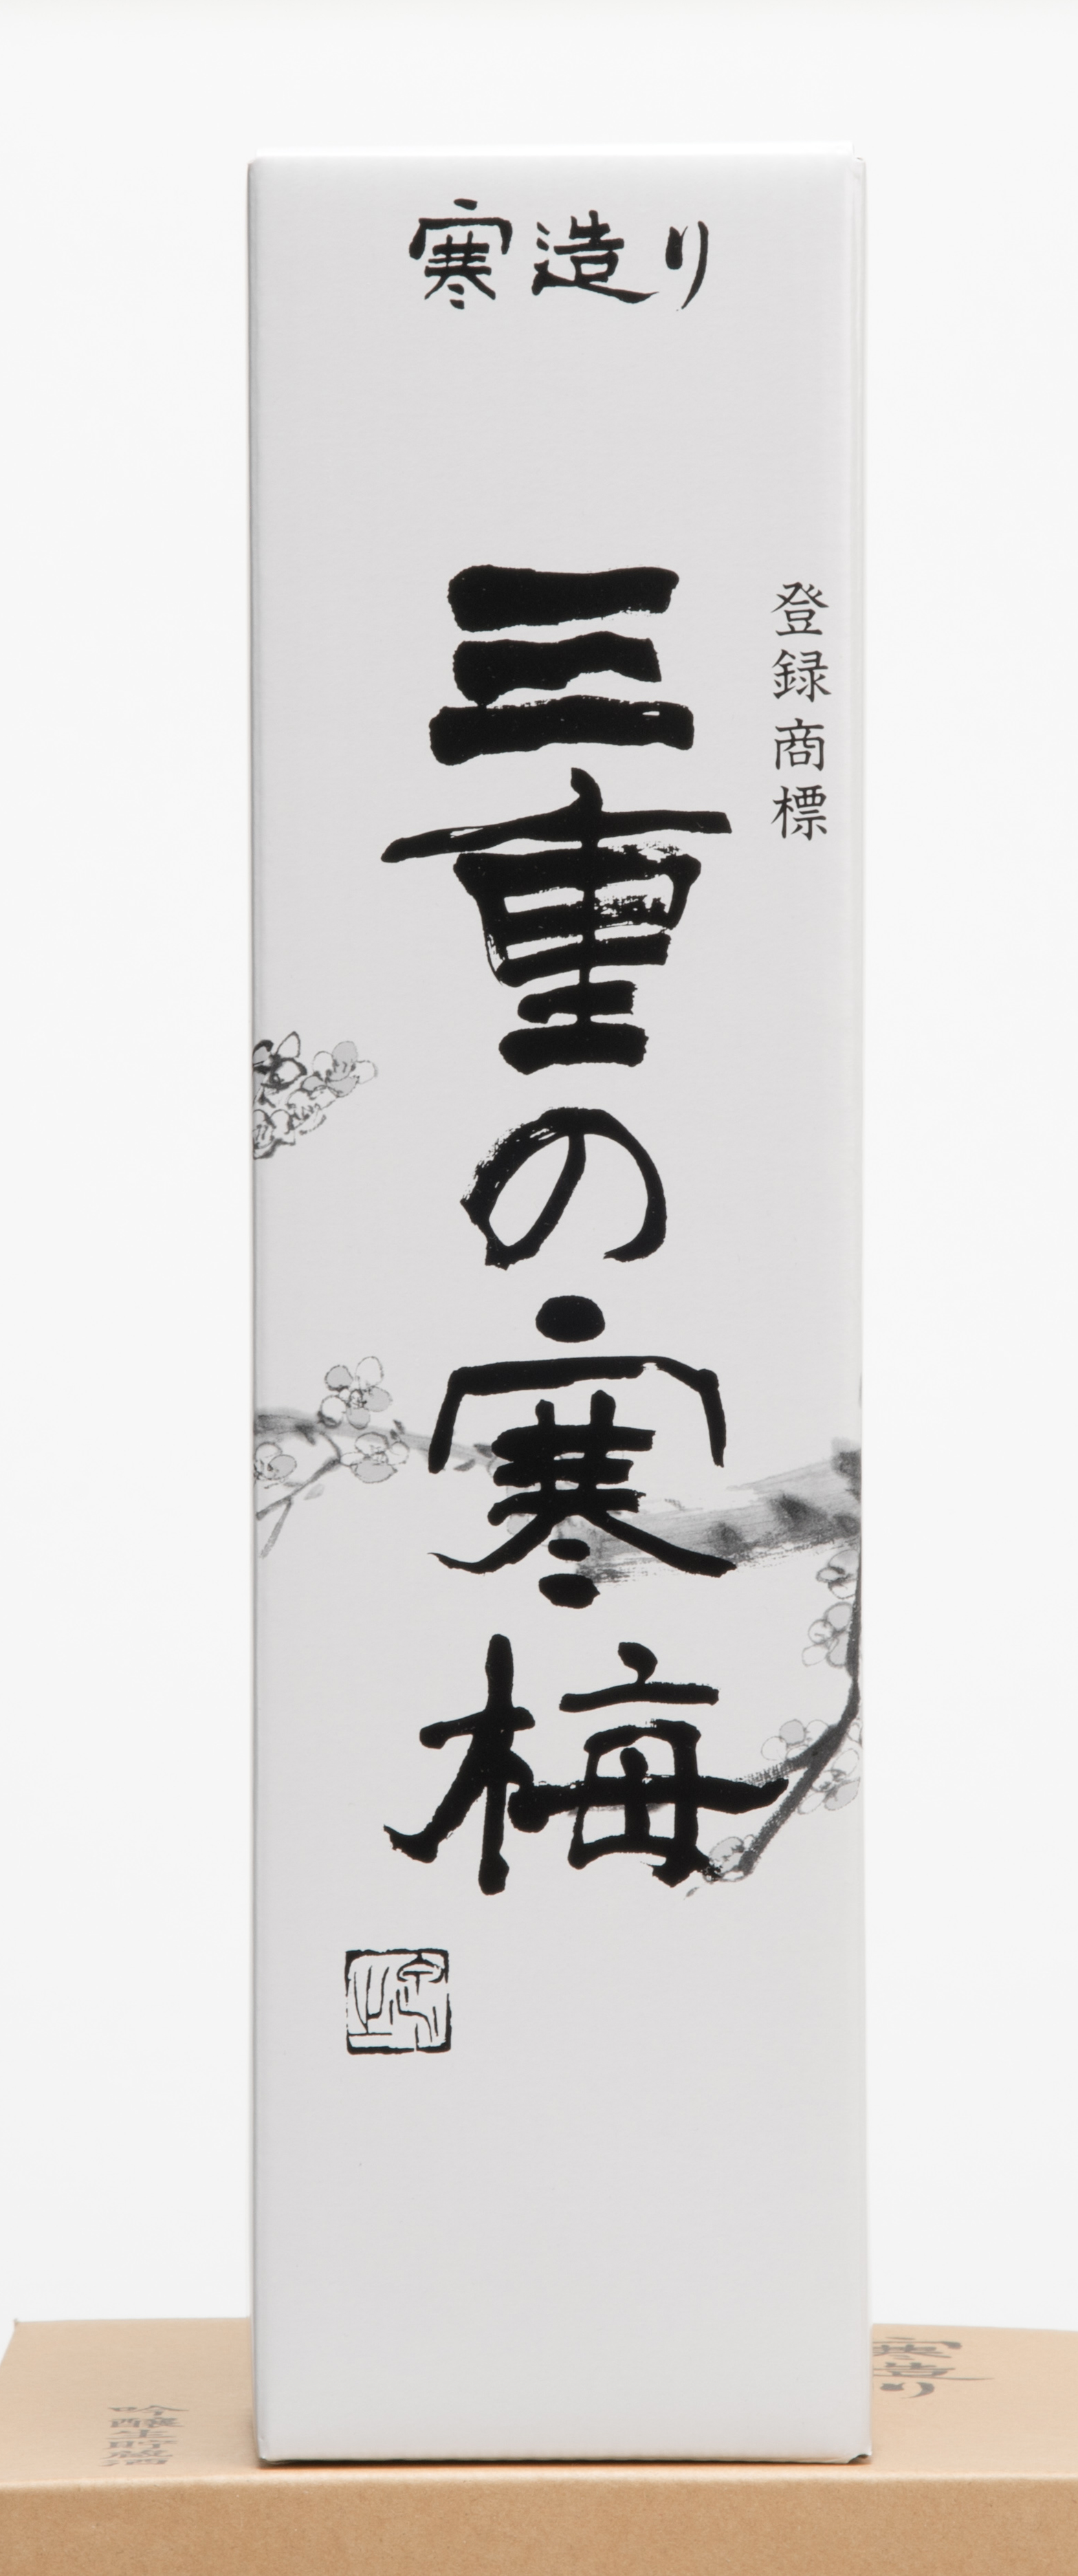 寒造り
登録商標
三重の寒梅
寒造り
吟醸生貯蔵酒